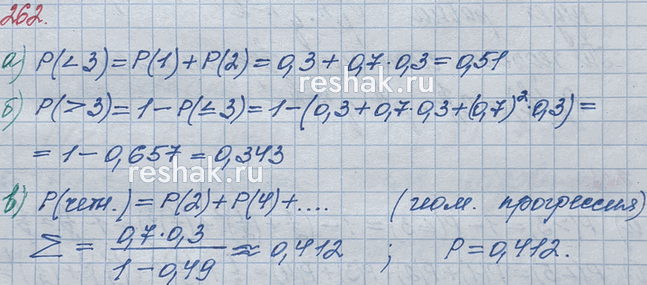 262.
а) P(<3) = P(1) + P(2) = 0,3 + 0,7·0,3 = 0,51
reshak.ru
б) P(>3) = 1 − P(≤3) = 1 − (0,3 + 0,7·0,3 + (0,7)²·0,3) =
= 1 − 0,657 = 0,343
reshak.ru
в) P(чет.) = P(2) + P(4) + .... (геом. прогрессия)
Σ = 0,7·0,3 / 1 − 0,49 ≈ 0,412 ; P = 0,412.